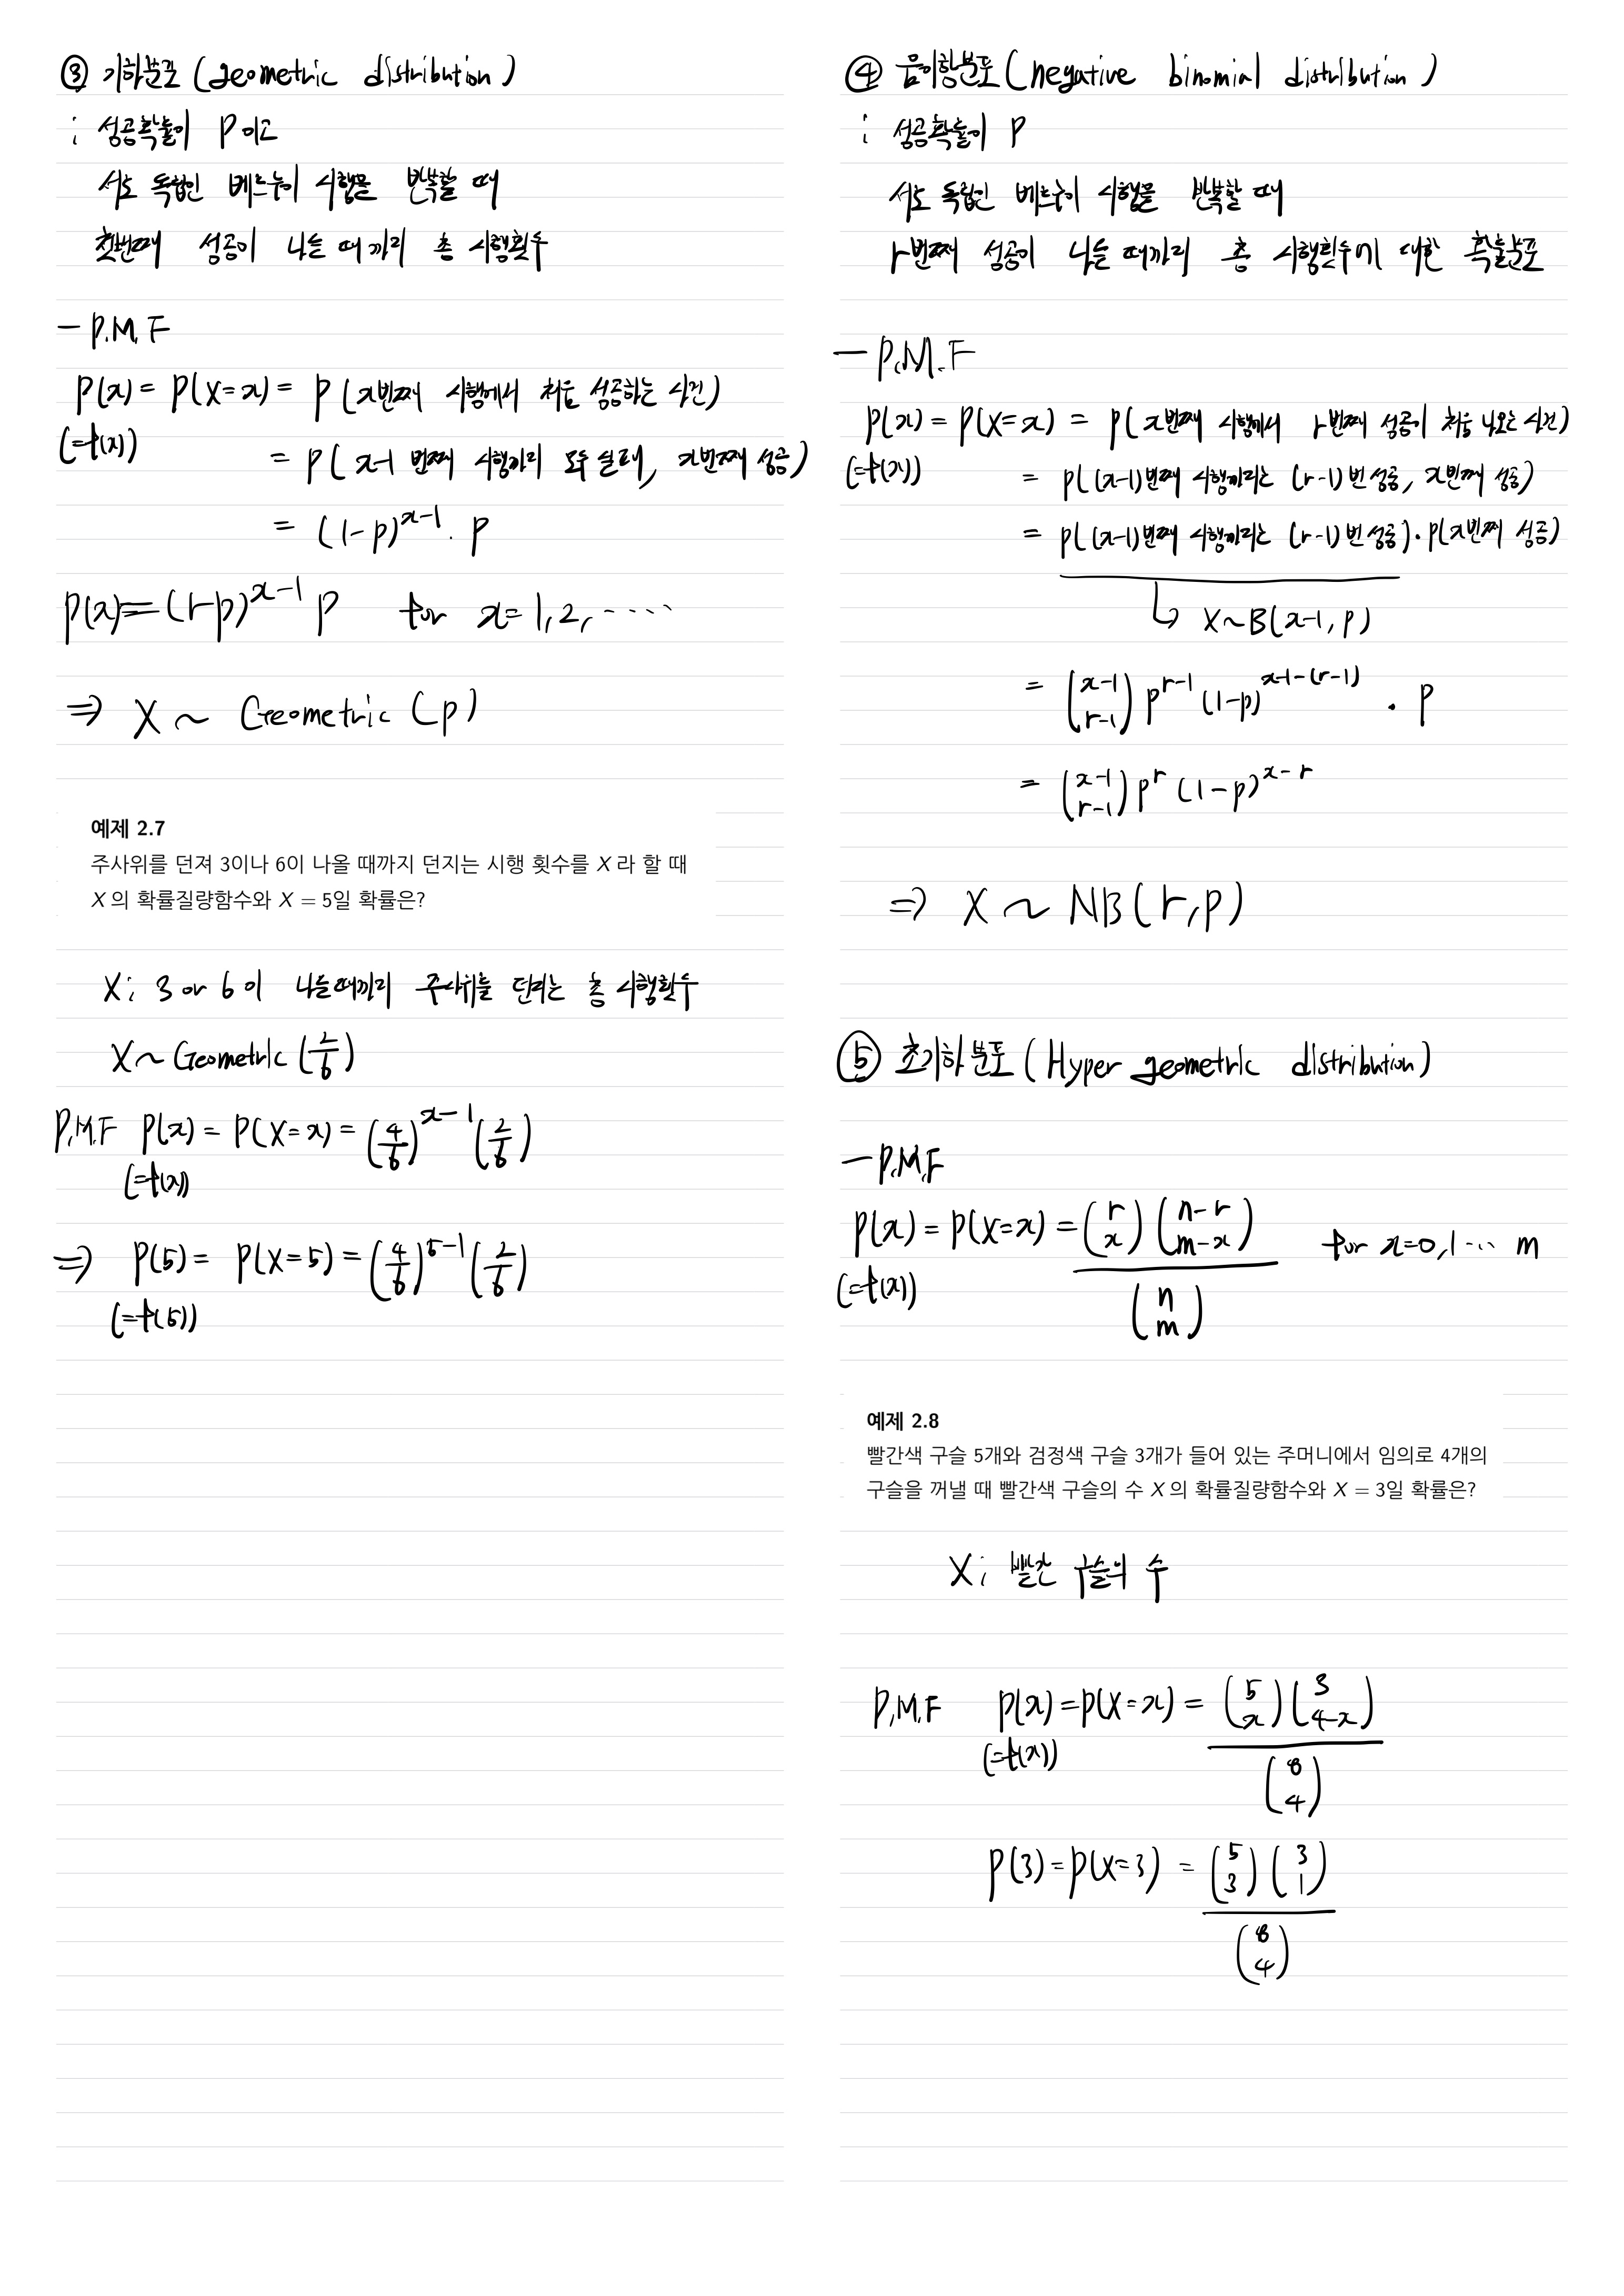 ③ 기하분포 (geometric distribution)
: 성공확률이 P 이고
서로 독립인 베르누이 시행을 반복할 때
첫번째 성공이 나올 때 까지 총 시행횟수
- P.M.F
P(x) = P(X=x) = P (x번째 시행에서 처음 성공하는 사건)
(=f(x))
= P( x-1 번째 시행까지 모두 실패, x번째 성공)
= (1-p)^{x-1} · p
P(x) = (1-p)^{x-1} p for x=1, 2, ····
⇒ X ~ Geometric (p)
예제 2.7
주사위를 던져 3이나 6이 나올 때까지 던지는 시행 횟수를 X 라 할 때
X 의 확률질량함수와 X = 5일 확률은?
X: 3 or 6 이 나올때까지 주사위를 던지는 총 시행횟수
X ~ Geometric (2/6)
P.M.F P(x) = P(X=x) = (4/6)^{x-1} (2/6)
(=f(x))
⇒ P(5) = P(X=5) = (4/6)^{5-1} (2/6)
(=f(5))
④ 음이항분포 (negative binomial distribution)
: 성공확률이 P
서로 독립인 베르누이 시행을 반복할 때
r번째 성공이 나올 때까지 총 시행횟수에 대한 확률분포
- P.M.F
P(x) = P(X=x) = P( x번째 시행에서 r번째 성공이 처음 나오는 사건)
(=f(x))
= P( (x-1)번째 시행까지는 (r-1) 번 성공, x번째 성공)
= P( (x-1)번째 시행까지는 (r-1) 번 성공) · P(x번째 성공)
↳ X~B(x-1, p)
= (x-1 r-1) p^{r-1} (1-p)^{x-1-(r-1)} · p
= (x-1 r-1) p^r (1-p)^{x-r}
⇒ X ~ NB(r, p)
⑤ 초기하 분포 (Hyper geometric distribution)
- P.M.F
P(x) = P(X=x) = (r x) (n-r m-x) / (n m) for x=0, 1 ··· m
(=f(x))
예제 2.8
빨간색 구슬 5개와 검정색 구슬 3개가 들어 있는 주머니에서 임의로 4개의
구슬을 꺼낼 때 빨간색 구슬의 수 X 의 확률질량함수와 X = 3일 확률은?
X: 빨간 구슬의 수
P.M.F P(x) = P(X=x) = (5 x) (3 4-x) / (8 4)
(=f(x))
P(3) = P(X=3) = (5 3) (3 1) / (8 4)